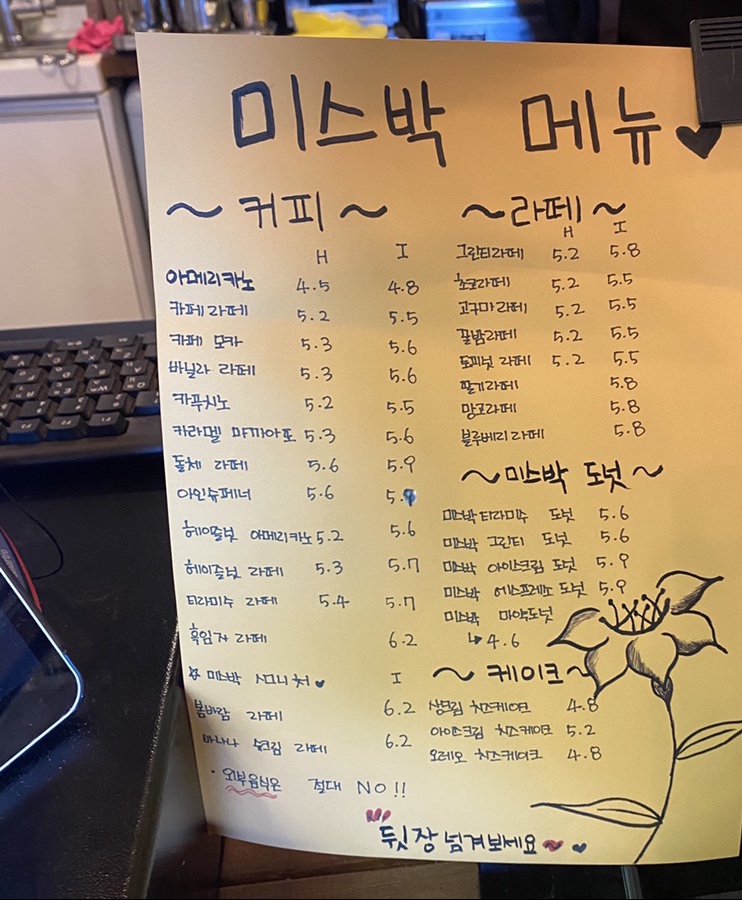 미스박 메뉴
~커피~
H I
아메리카노 4.5 4.8
카페라떼 5.2 5.5
카페 모카 5.3 5.6
바닐라 라떼 5.3 5.6
카푸치노 5.2 5.5
카라멜 마끼아또 5.3 5.6
돌체 라떼 5.6 5.9
아인슈페너 5.6 5.9
헤이즐넛 아메리카노 5.2 5.6
헤이즐넛 라떼 5.3 5.7
티라미수 라떼 5.4 5.7
흑임자 라떼 6.2
☆ 미스박 시그니처 ♥ I
봄바람 라떼 6.2
바나나 슈크림 라떼 6.2
• 외부음식은 절대 NO!!
~라떼~
H I
그린티라떼 5.2 5.8
초코라떼 5.2 5.5
고구마라떼 5.2 5.5
꿀밤라떼 5.2 5.5
토피넛 라떼 5.2 5.5
딸기라떼 5.8
망고라떼 5.8
블루베리라떼 5.8
~미스박 도넛~
미스박 티라미수 도넛 5.6
미스박 그린티 도넛 5.6
미스박 아이스크림 도넛 5.9
미스박 에스프레소 도넛 5.9
미스박 마약도넛
↳ 4.6
~케이크~
생크림 치즈케이크 4.8
아이스크림 치즈케이크 5.2
오레오 치즈케이크 4.8
뒷장 넘겨보세요~♥